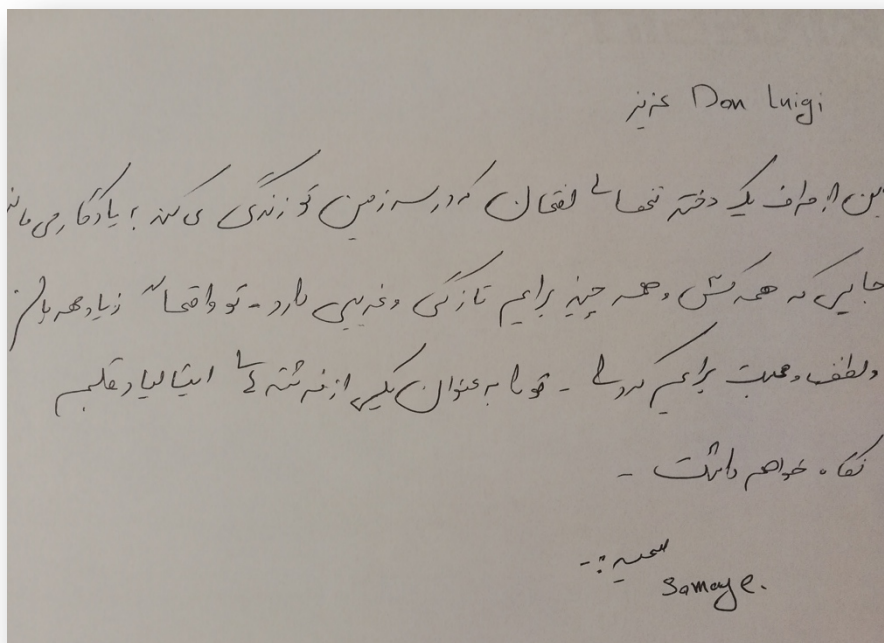 Don Luigi عزیز
این از طرف یک دختر تنهای افغان که در سرزمین تو زندگی می کند به یادگار می ماند
جایی که همه کس و همه چیز برایم تازگی و غریبی دارد - تو واقعاً زیاد مهربانی
و لطف و محبت برایم کردی - تو را به عنوان یکی از فرشته های ایتالیا در قلبم
نگاه خواهم داشت -
سمیه :-
Somaye.